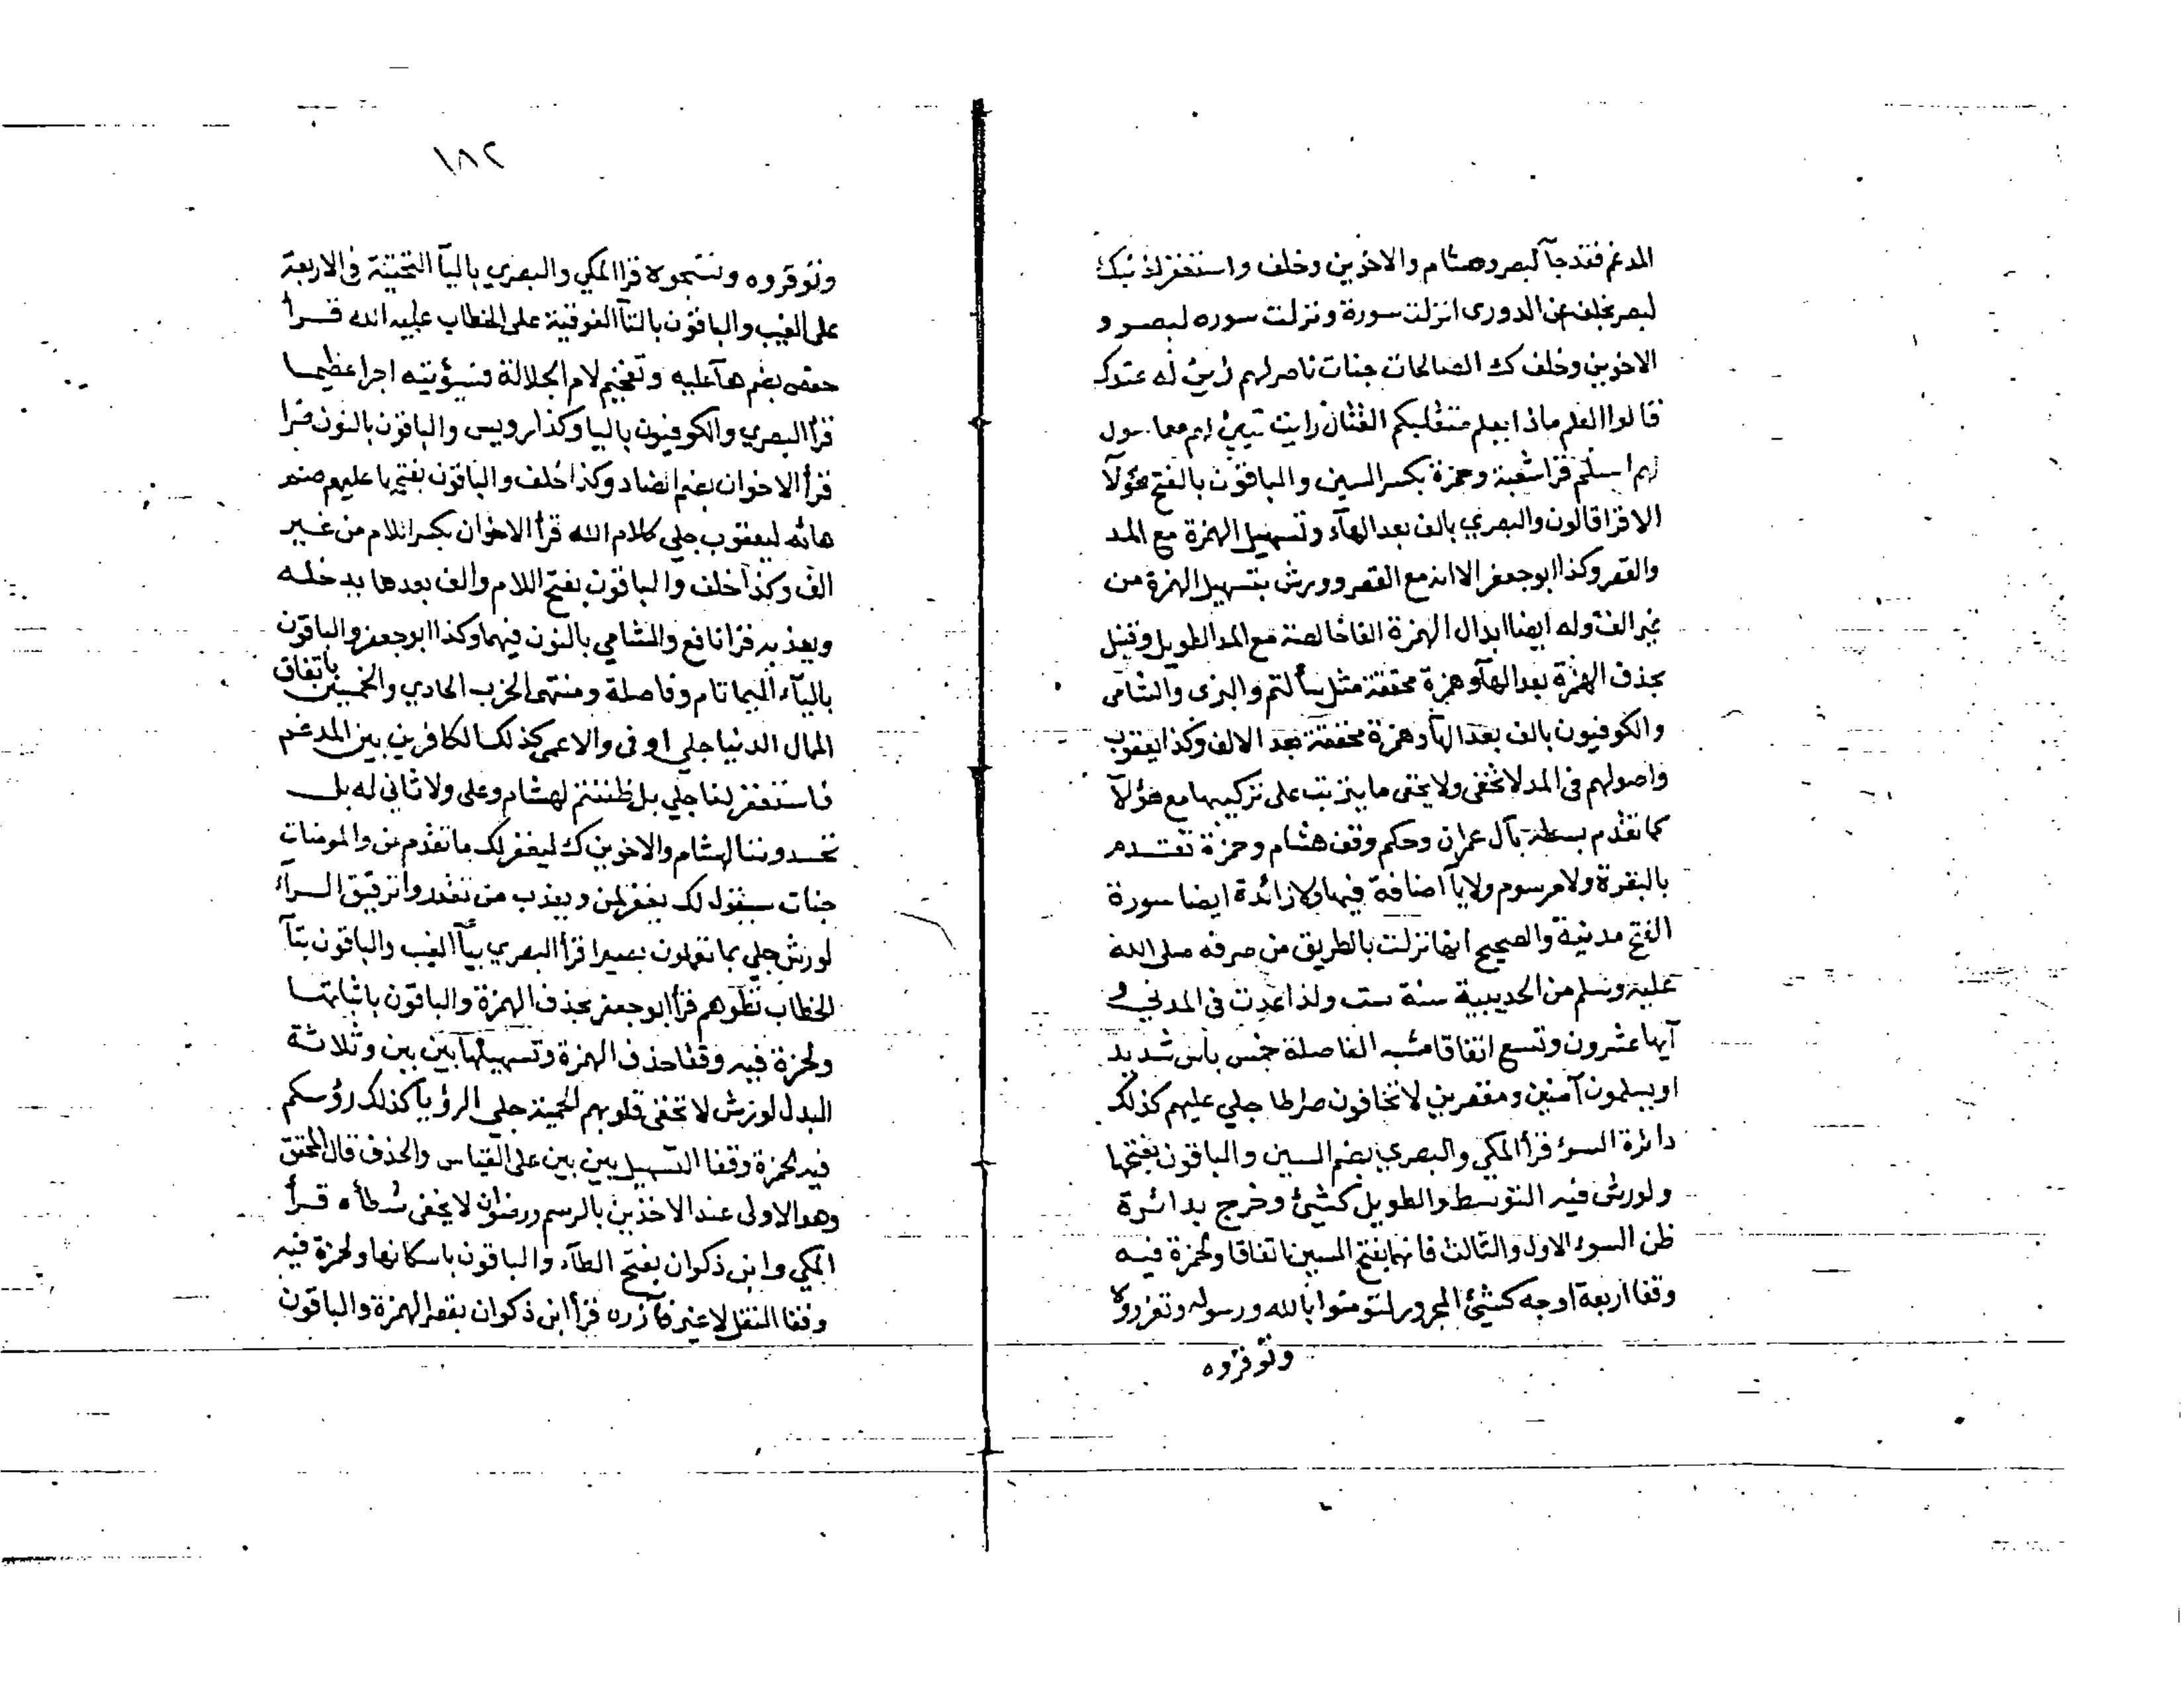 المدغم فقد جآ لبصر وهشام والاخوين وخلف واستغفر لذنبك
لبصر بخلف عن الدورى انزلت سورة ونزلت سوره لبصر و
الاخوين وخلف ك الصالحات جنات ناصر لهم زين له عندك
قالوا العلم ماذا يعلم متقلبكم القتال رايت تبين لهم معا سول
لهم السلم قرا شعبة وحمزة بكسر السين والباقون بالفتح هؤلآ
الا قرا قالون والبصري بالف بعد الهآء وتسهيل الهمزة مع المد
والقصر وكذا ابو جعفر الا انه مع القصر وورش بتسهيل الهمزة من
غير الف وله ايضا ابدال الهمزة الفا خالصة مع المد الطويل وقنبل
بحذف الهمزة بعد الهآ وهمزة محققة مثل سألتم والبزى والشامى
والكوفيون بالف بعد الهآ وهمزة محققة بعد الالف وكذا يعقوب
واصولهم فى المد لا تخفى ولا يخفى ما يترتب على تركيبها مع هؤلآ
كما تقدم بسطه بآل عمران وحكم وقف هشام وحمزة تقدم
بالبقرة ولا مرسوم ولا يآ اضافة فيها ولا زائدة ايضا سورة
الفتح مدنية والصحيح انها نزلت بالطريق من صرفه صلى الله
عليه وسلم من الحديبية سنة ست ولذا عدت فى المدني و
آيها عشرون وتسع اتفاقا مشبه الفاصلة خمس باس شديد
او يسلمون آمنين ومقصرين لا تخافون صراطا جلي عليهم كذلك
دائرة السوء قرأ المكي والبصري بضم السين والباقون بفتحها
ولورش فيه التوسط والطويل كشئ وخرج بدائرة
ظن السوء الاول والثالث فانهما بفتح السين اتفاقا ولحمزة فيه
وقفا اربعة اوجه كشئ المجرور لتومنوا بالله ورسوله وتعزروه
وتوقروه
١٨٢
وتوقروه وتسبحوه قرا المكي والبصري باليآ التحتية فى الاربعة
على الغيب والباقون بالتآ الفوقية على الخطاب عليه الله قرأ
حفص بضم هآ عليه وتفخيم لام الجلالة فسيؤتيه اجرا عظيما
قرأ البصري والكوفيون باليا وكذا رويس والباقون بالنون ضرا
قرأ الاخوان بضم الضاد وكذا خلف والباقون بفتحها عليهم ضم
هائه ليعقوب جلي كلام الله قرأ الاخوان بكسر اللام من غير
الف وكذا خلف والباقون بفتح اللام والف بعدها يدخله
ويعذبه قرا نافع والشامي بالنون فيهما وكذا ابو جعفر والباقون
باليآء اليما تام وفاصلة ومنتهى الحزب الحادي والخمسين باتفاق
الممال الدنيا جلي اوفى والاعمى كذلك الكافرين بين المدغم
فاستغفر لنا جلي بل ظننتم لهشام وعلى ولا ثاني له بل
تحسدوننا لهشام والاخوين ك ليغفر لك ما تقدم من والمومنات
جنات سيقول لك يغفر لمن ويعذب من تقدروا ترقيق الرآء
لورش جلي بما تعملون بصيرا قرأ البصري بيآ الغيب والباقون بتآ
الخطاب تطوهم قرأ ابو جعفر بحذف الهمزة والباقون باثباتها
ولحمزة فيه وقفا حذف الهمزة وتسهيلها بين بين وثلاثة
البدل لورش لا تخفى قلوبهم الحمية جلي الرؤيا كذلك رؤسكم
فيه لحمزة وقفا التسهيل بين بين على القياس والحذف قال المحقق
وهو الاولى عند الاخذين بالرسم ورضوان لا يخفى شطأه قرأ
المكي وابن ذكوان بفتح الطآء والباقون باسكانها ولحمزة فيه
وقفا النقل لا غير فآزره قرأ ابن ذكوان بقصر الهمزة والباقون